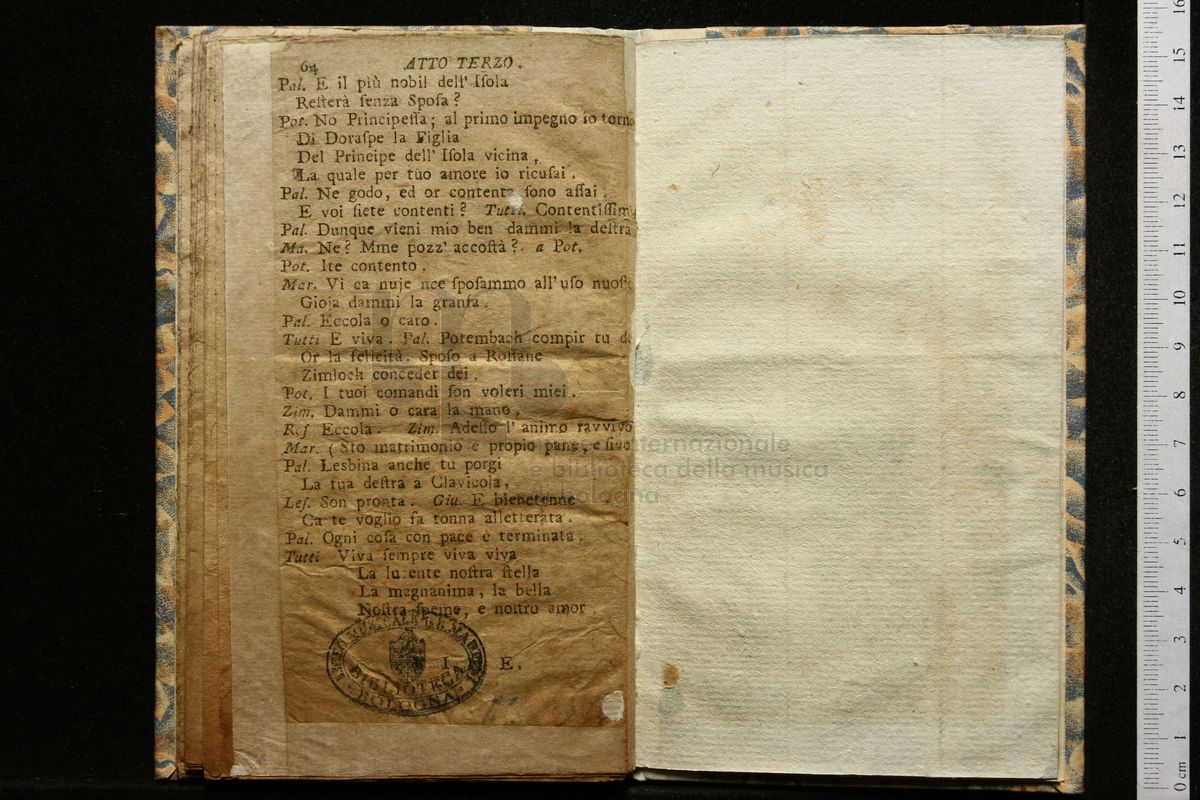 64 ATTO TERZO.
Pal. E il più nobil dell' Iſola
Reſterà ſenza Spoſa?
Pot. No Principeſſa; al primo impegno io torno
Di Doraſpe la Figlia
Del Principe dell' Iſola vicina,
La quale per tuo amore io ricuſai.
Pal. Ne godo, ed or contenta ſono aſſai.
E voi ſiete contenti? Tutti. Contentiſſim
Pal. Dunque vieni mio ben dammi la deſtra
Ma. Ne? Mme pozz' accoſtà? a Pot.
Pot. Ite contento.
Mar. Vi ca nuje nce ſpoſammo all' uſo nuoſt
Gioja dammi la granfa.
Pal. Eccola o caro.
Tutti E viva. Pal. Potembach compir tu d
Or la felicità. Spoſo a Roſſane
Zimloch conceder dei.
Pot. I tuoi comandi ſon voleri miei.
Zim. Dammi o cara la mano.
Roſ Eccola. Zim. Adeſſo l' animo ravvivo
Mar. (Sto matrimonio è propio pane, e
Pal. Lesbina anche tu porgi
La tua deſtra a Clavicola,
Leſ. Son pronta. Giu. E bienetenne
Ca te voglio fa tonna alletterata.
Pal. Ogni coſa con pace è terminata.
Tutti Viva ſempre viva viva
La lucente noſtra ſtella
La magnanima, la bella
Noſtra ſpeme, e noſtro amor
I E.
BIBLIOTECA
BOLOGNA
internazionale
e biblioteca della musica
di bologna
0 cm 1 2 3 4 5 6 7 8 9 10 11 12 13 14 15 16